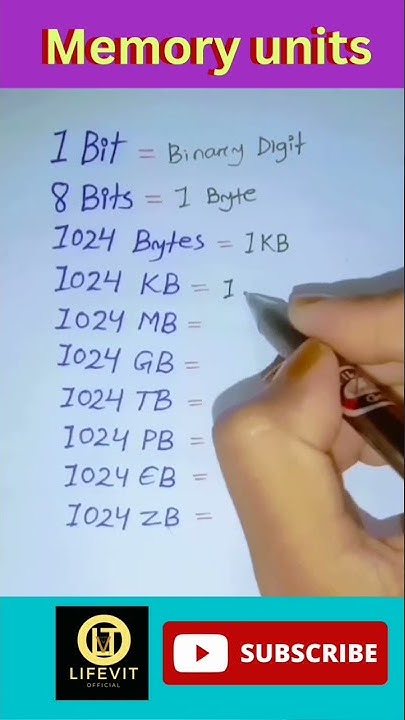 Memory units
1 Bit = Binary Digit
8 Bits = 1 Byte
1024 Bytes = 1KB
1024 KB = 1
1024 MB =
1024 GB =
1024 TB =
1024 PB =
1024 EB =
1024 ZB =
LT
LIFEVIT
OFFICIAL
SUBSCRIBE